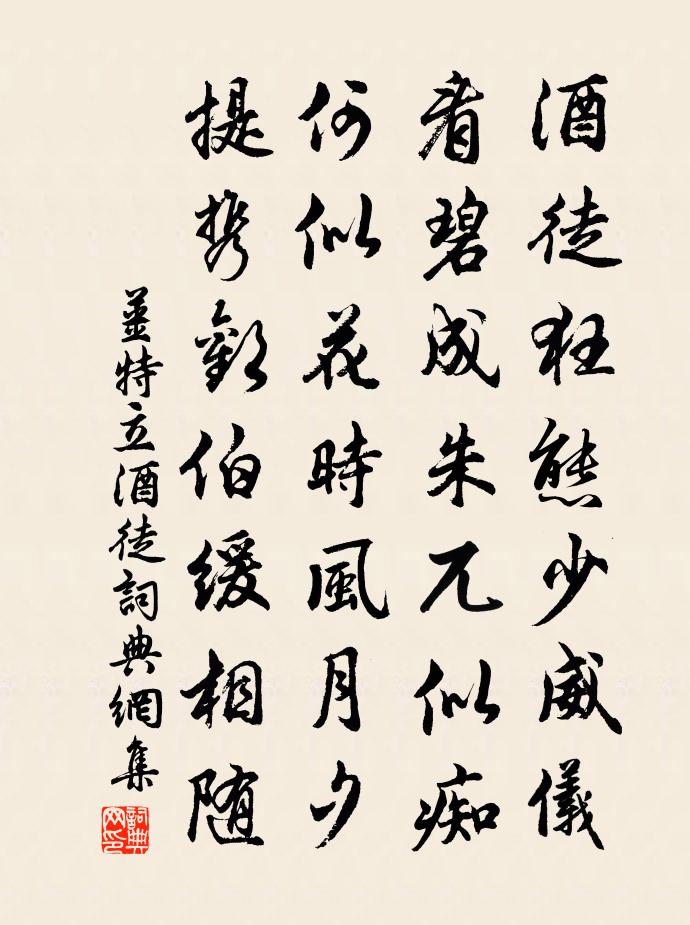 酒徒狂態少威儀
看碧成朱兀似痴
何似花時風月夕
提携歡伯緩相随
薑特立酒徒詞典網集
詞典网印